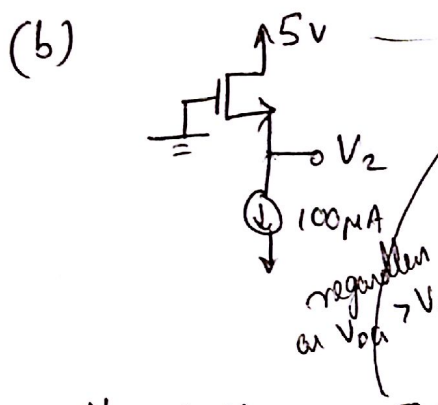 (b)
5V
V₂
100μA
regardless
as V
> V